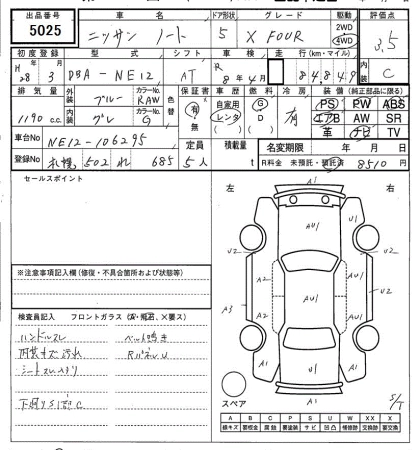 出品番号 車名 ドア形状 グレード 駆動 評価点
5025 ニッサン ノート 5 X FOUR 2WD 4WD 3.5
初度登録 型式 シフト 車検 走行(km・マイル) 内装
H 28 3 DBA-NE12 AT R 8年4月 84,849 C
排気量 外装 ブルー カラーNo. RAW 色替 保証書 車歴 燃料 冷房 装備(純正部品に限る)
1190 c.c. 内装 グレ カラーNo. G 有 無 自家用 レンタ ( ) G D ( ) 有 PS PW ABS
エアB AW SR
革 ナビ TV
車台No NE12-106295 定員 積載量 名変期限 年 月 日
登録No 札幌 502 れ 685 5人 t R料金 未預託・預託済 8510円
セールスポイント
左 右
A1
A1
AU1
U2
U2
A2
A2
AU1
A3
A2
U2
AU1
A1
A1
A1
スペア
S/T
※注意事項記入欄(修復・不具合箇所および状態等)
検査員記入 フロントガラス(A・飛石、×要ス)
ハンドルスレ ベルト鳴き
内装キズ汚れ RパネルU
下廻りS1部C
A B C P S U W XX X
線キズ 要板金 腐蝕 要塗装 サビ 凹凸 補修跡 交換跡 要交換